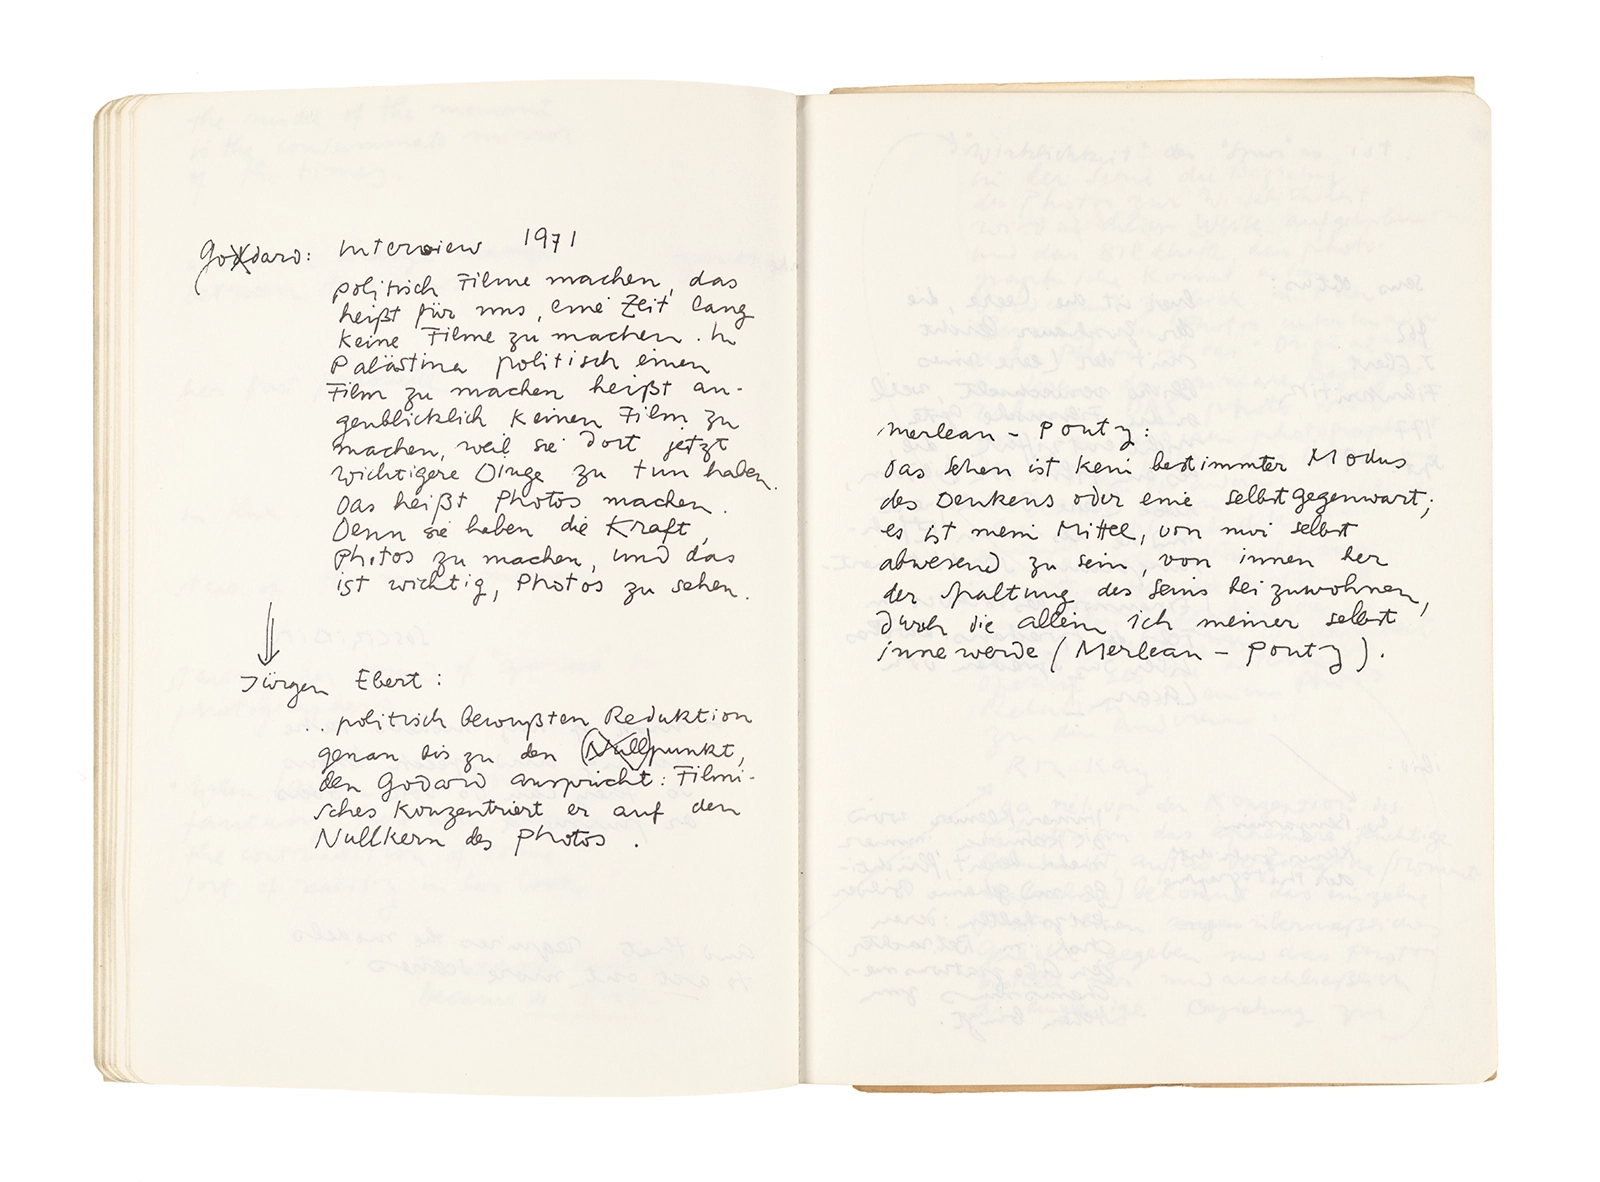 Godard: Interview 1971
politisch Filme machen, das
heißt für uns, eine Zeit lang
keine Filme zu machen. In
Palästina politisch einen
Film zu machen heißt au-
genblicklich keinen Film zu
machen, weil sie dort jetzt
wichtigere Dinge zu tun haben.
Das heißt Photos machen.
Denn sie haben die Kraft,
Photos zu machen, und das
ist wichtig, Photos zu sehen.
Jürgen Ebert:
.. politisch bewußten Reduktion
genau bis zu den Nullpunkt,
den Godard ausspricht: Filmi-
sches Konzentriert er auf den
Nullkern des Photos.
Merleau-Ponty:
Das Sehen ist kein bestimmter Modus
des Denkens oder eine Selbstgegenwart;
es ist mein Mittel, von mir selbst
abwesend zu sein, von innen her
der Spaltung des Seins beizuwohnen,
durch die allein ich meiner selbst
innewerde (Merleau-Ponty).